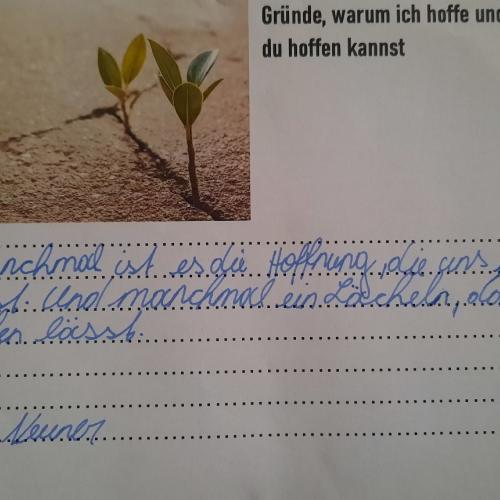 Gründe, warum ich hoffe und
du hoffen kannst
nchmal ist es die Hoffnung, die uns
st. Und manchmal ein Lächeln, da
en lässt.
Neuner